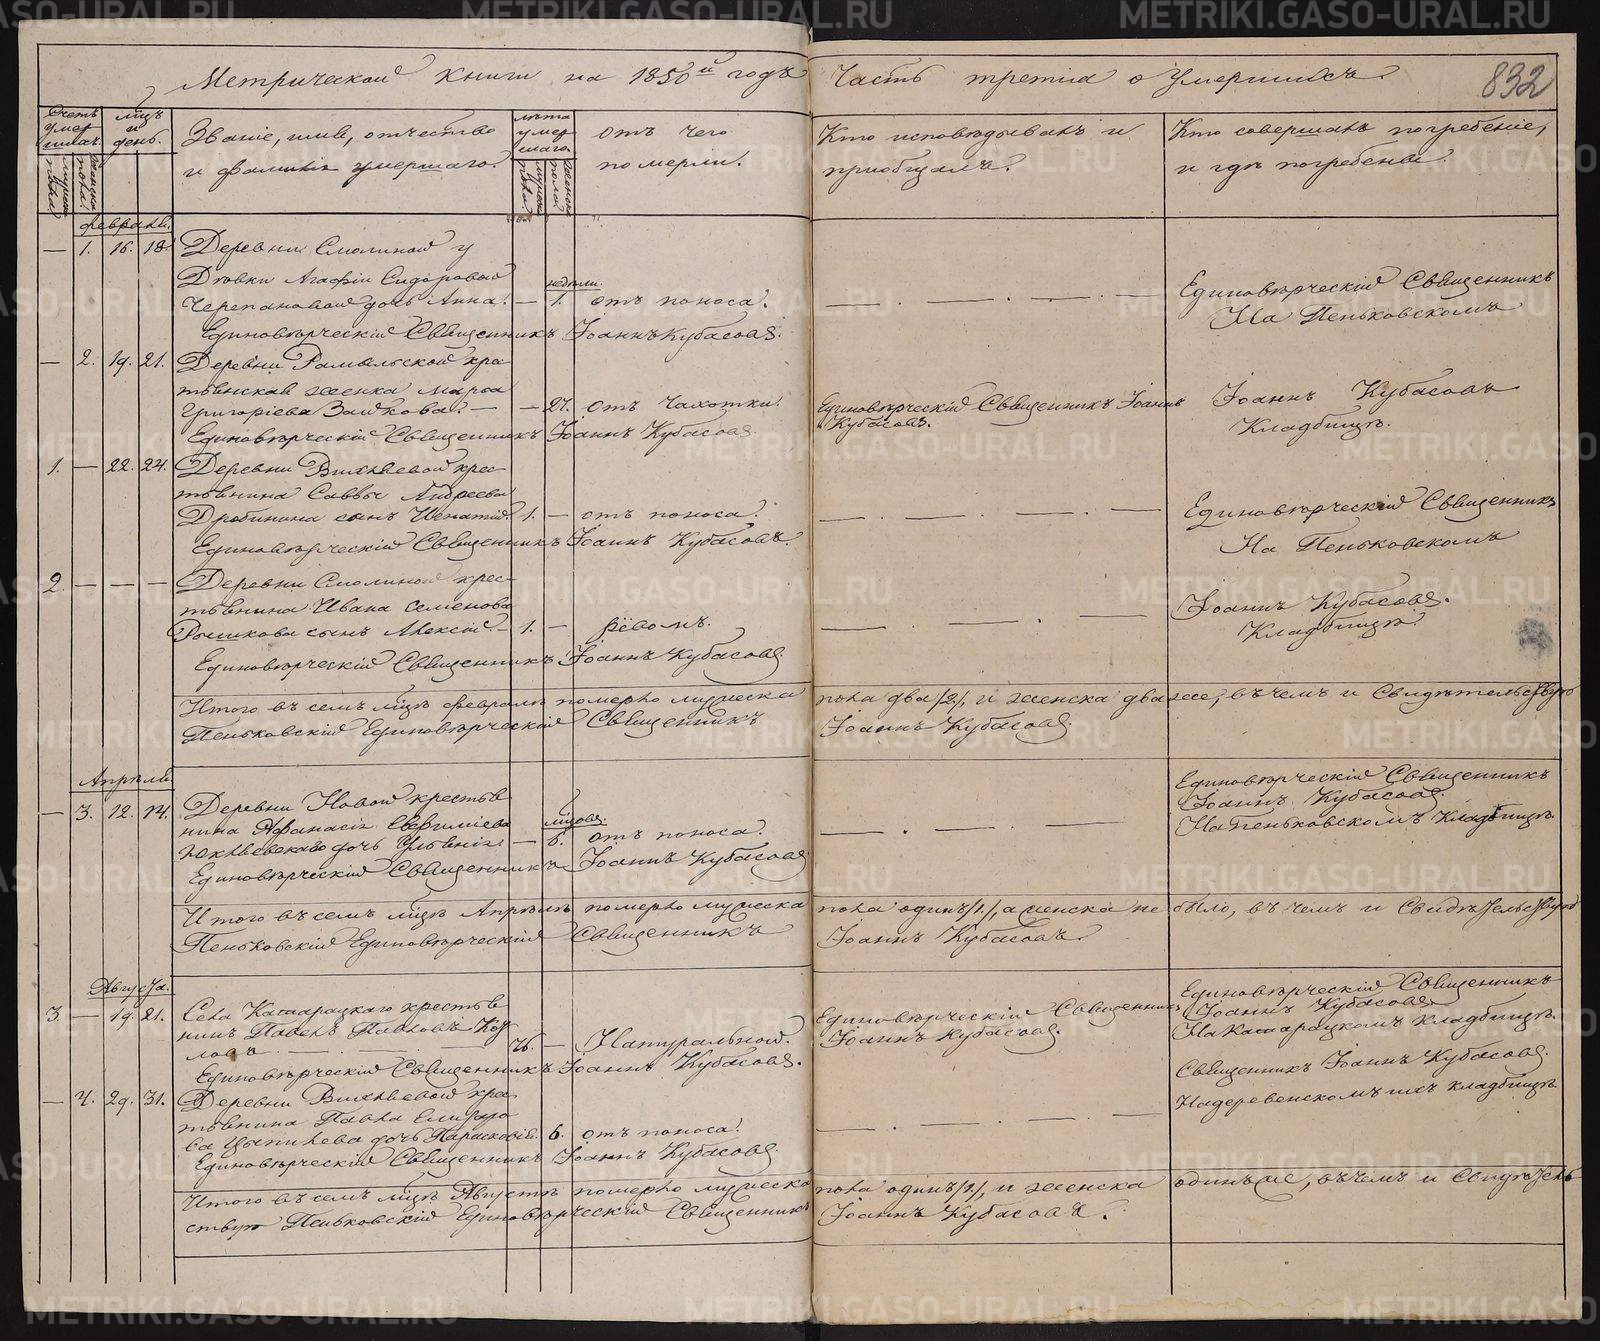 METRIKI.GASO-URAL.RU
Метрической книги на 1850й годъ
Часть третія о умершихъ.
832
Счетъ умершихъ.
мужеска пола
женска пола.
мцъ и день.
Званіе, имя, отчество
и фамилія умершаго.
лѣта умершаго.
мужеска пола.
женска пола
отъ чего
померли.
Кто исповѣдывалъ и
пріобщалъ.
Кто совершалъ погребеніе,
и гдѣ погребены.
Февраля.
— 1. 16. 18. Деревни Смолиной у
Дѣвки Агафіи Сидоровой
недѣли.
Черепановой дочь Анна. — 1. отъ поноса.
Единовѣрческій Священникъ Іоаннъ Кубасовъ.
Единовѣрческій Священникъ
На Пеньковскомъ
— 2. 19. 21. Деревни
крестьянская женка Марѳа
Григоріева — — 27. отъ Чахотки.
Единовѣрческій Священникъ Іоаннъ Кубасовъ.
Единовѣрческій Священникъ Іоаннъ
Кубасовъ.
Іоаннъ Кубасовъ
Кладбищѣ.
1. — 22. 24. Деревни крес-
тьянина Саввы Андреева
Дробинина сынъ Игнатій. 1. — отъ поноса.
Единовѣрческій Священникъ Іоаннъ Кубасовъ.
Единовѣрческій Священникъ
На Пеньковскомъ
2. — — — Деревни Смолиной крес-
тьянина Ивана Семенова
сынъ Алексій. — 1. — рёвомъ.
Единовѣрческій Священникъ Іоаннъ Кубасовъ.
Іоаннъ Кубасовъ.
Кладбищѣ.
Итого въ семъ мцѣ Февралѣ померло мужеска пола два /2/, и женска два же, въ чемъ и Свидѣтельствую
Пеньковскій Единовѣрческій Священникъ Іоаннъ Кубасовъ.
Апрѣля.
— 3. 12. 14. Деревни Новой крестья-
нина Афанасія Евфиміева
мцовъ.
дочь — 6. отъ поноса.
Единовѣрческій Священникъ Іоаннъ Кубасовъ
Единовѣрческій Священникъ
Іоаннъ Кубасовъ.
На Пеньковскомъ Кладбищѣ.
Итого въ семъ мцѣ Апрѣлѣ померло мужеска пола одинъ /1./, а женска не было, въ чемъ и Свидѣтельствую
Пеньковскій Единовѣрческій Священникъ Іоаннъ Кубасовъ.
Августа.
3. — 19. 21. Села Катарацкаго крестья-
нинъ Павелъ Павловъ Коз-
ловъ — 76. — Натуральной.
Единовѣрческій Священникъ Іоаннъ Кубасовъ.
Единовѣрческій Священникъ
Іоаннъ Кубасовъ.
Единовѣрческій Священникъ
Іоаннъ Кубасовъ.
На Катарацкомъ кладбищѣ.
— 4. 29. 31. Деревни кре-
стьянина Павла
дочь Парасковія. 6. отъ поноса.
Единовѣрческій Священникъ Іоаннъ Кубасовъ.
Священникъ Іоаннъ Кубасовъ.
На деревенскомъ ихъ кладбищѣ.
Итого въ семъ мцѣ Августѣ померло мужеска пола одинъ /1./, и женска одинъ же, въ чемъ и Свидѣтель-
ствую Пеньковскій Единовѣрческій Священникъ Іоаннъ Кубасовъ.